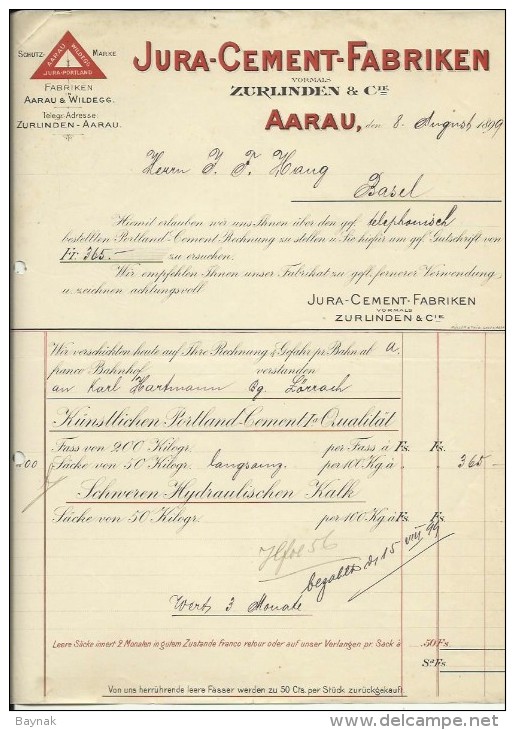 SCHUTZ- MARKE
AARAU WILDEGG
JURA-PORTLAND
FABRIKEN
IN
AARAU & WILDEGG.
Telegr.-Adresse
ZURLINDEN-AARAU.
JURA-CEMENT-FABRIKEN
VORMALS
ZURLINDEN & CIE
AARAU, den 8. August 1899
Herrn J. F. Haug
Basel
Hiemit erlauben wir uns Ihnen über den ggf. telephonisch
bestellten Portland-Cement Rechnung zu stellen u. Sie hiefür um ggf. Gutschrift von
Fr. 365.— zu ersuchen.
Wir empfehlen Ihnen unser Fabrikat zu gefl. fernerer Verwendung,
u. zeichnen achtungsvoll
JURA-CEMENT-FABRIKEN
VORMALS
ZURLINDEN & CIE.
Wir verschickten heute auf Ihre Rechnung & Gefahr pr. Bahn al a.
franco Bahnhof verstanden
an Karl Hartmann Bg. Lörrach
Künstlichen Portland-Cement Ia Qualität
Fass von 200 Kilogr. per Fass à Fs. Fs.
200 Säcke von 50 Kilogr. langsang. per 100 Kg à 365 —
Schweren Hydraulischen Kalk
Säcke von 50 Kilogr. per 100 Kg à Fs. Fs.
bezahlt d. 15 VIII 99
Wert 3 Monate
Leere Säcke innert 2 Monaten in gutem Zustande Franco retour oder auf unser Verlangen pr. Sack à 50 Fs.
Sa Fs.
Von uns herrührende leere Fässer werden zu 50 Cts. per Stück zurückgekauft.
Baynak
www.delcampe.net